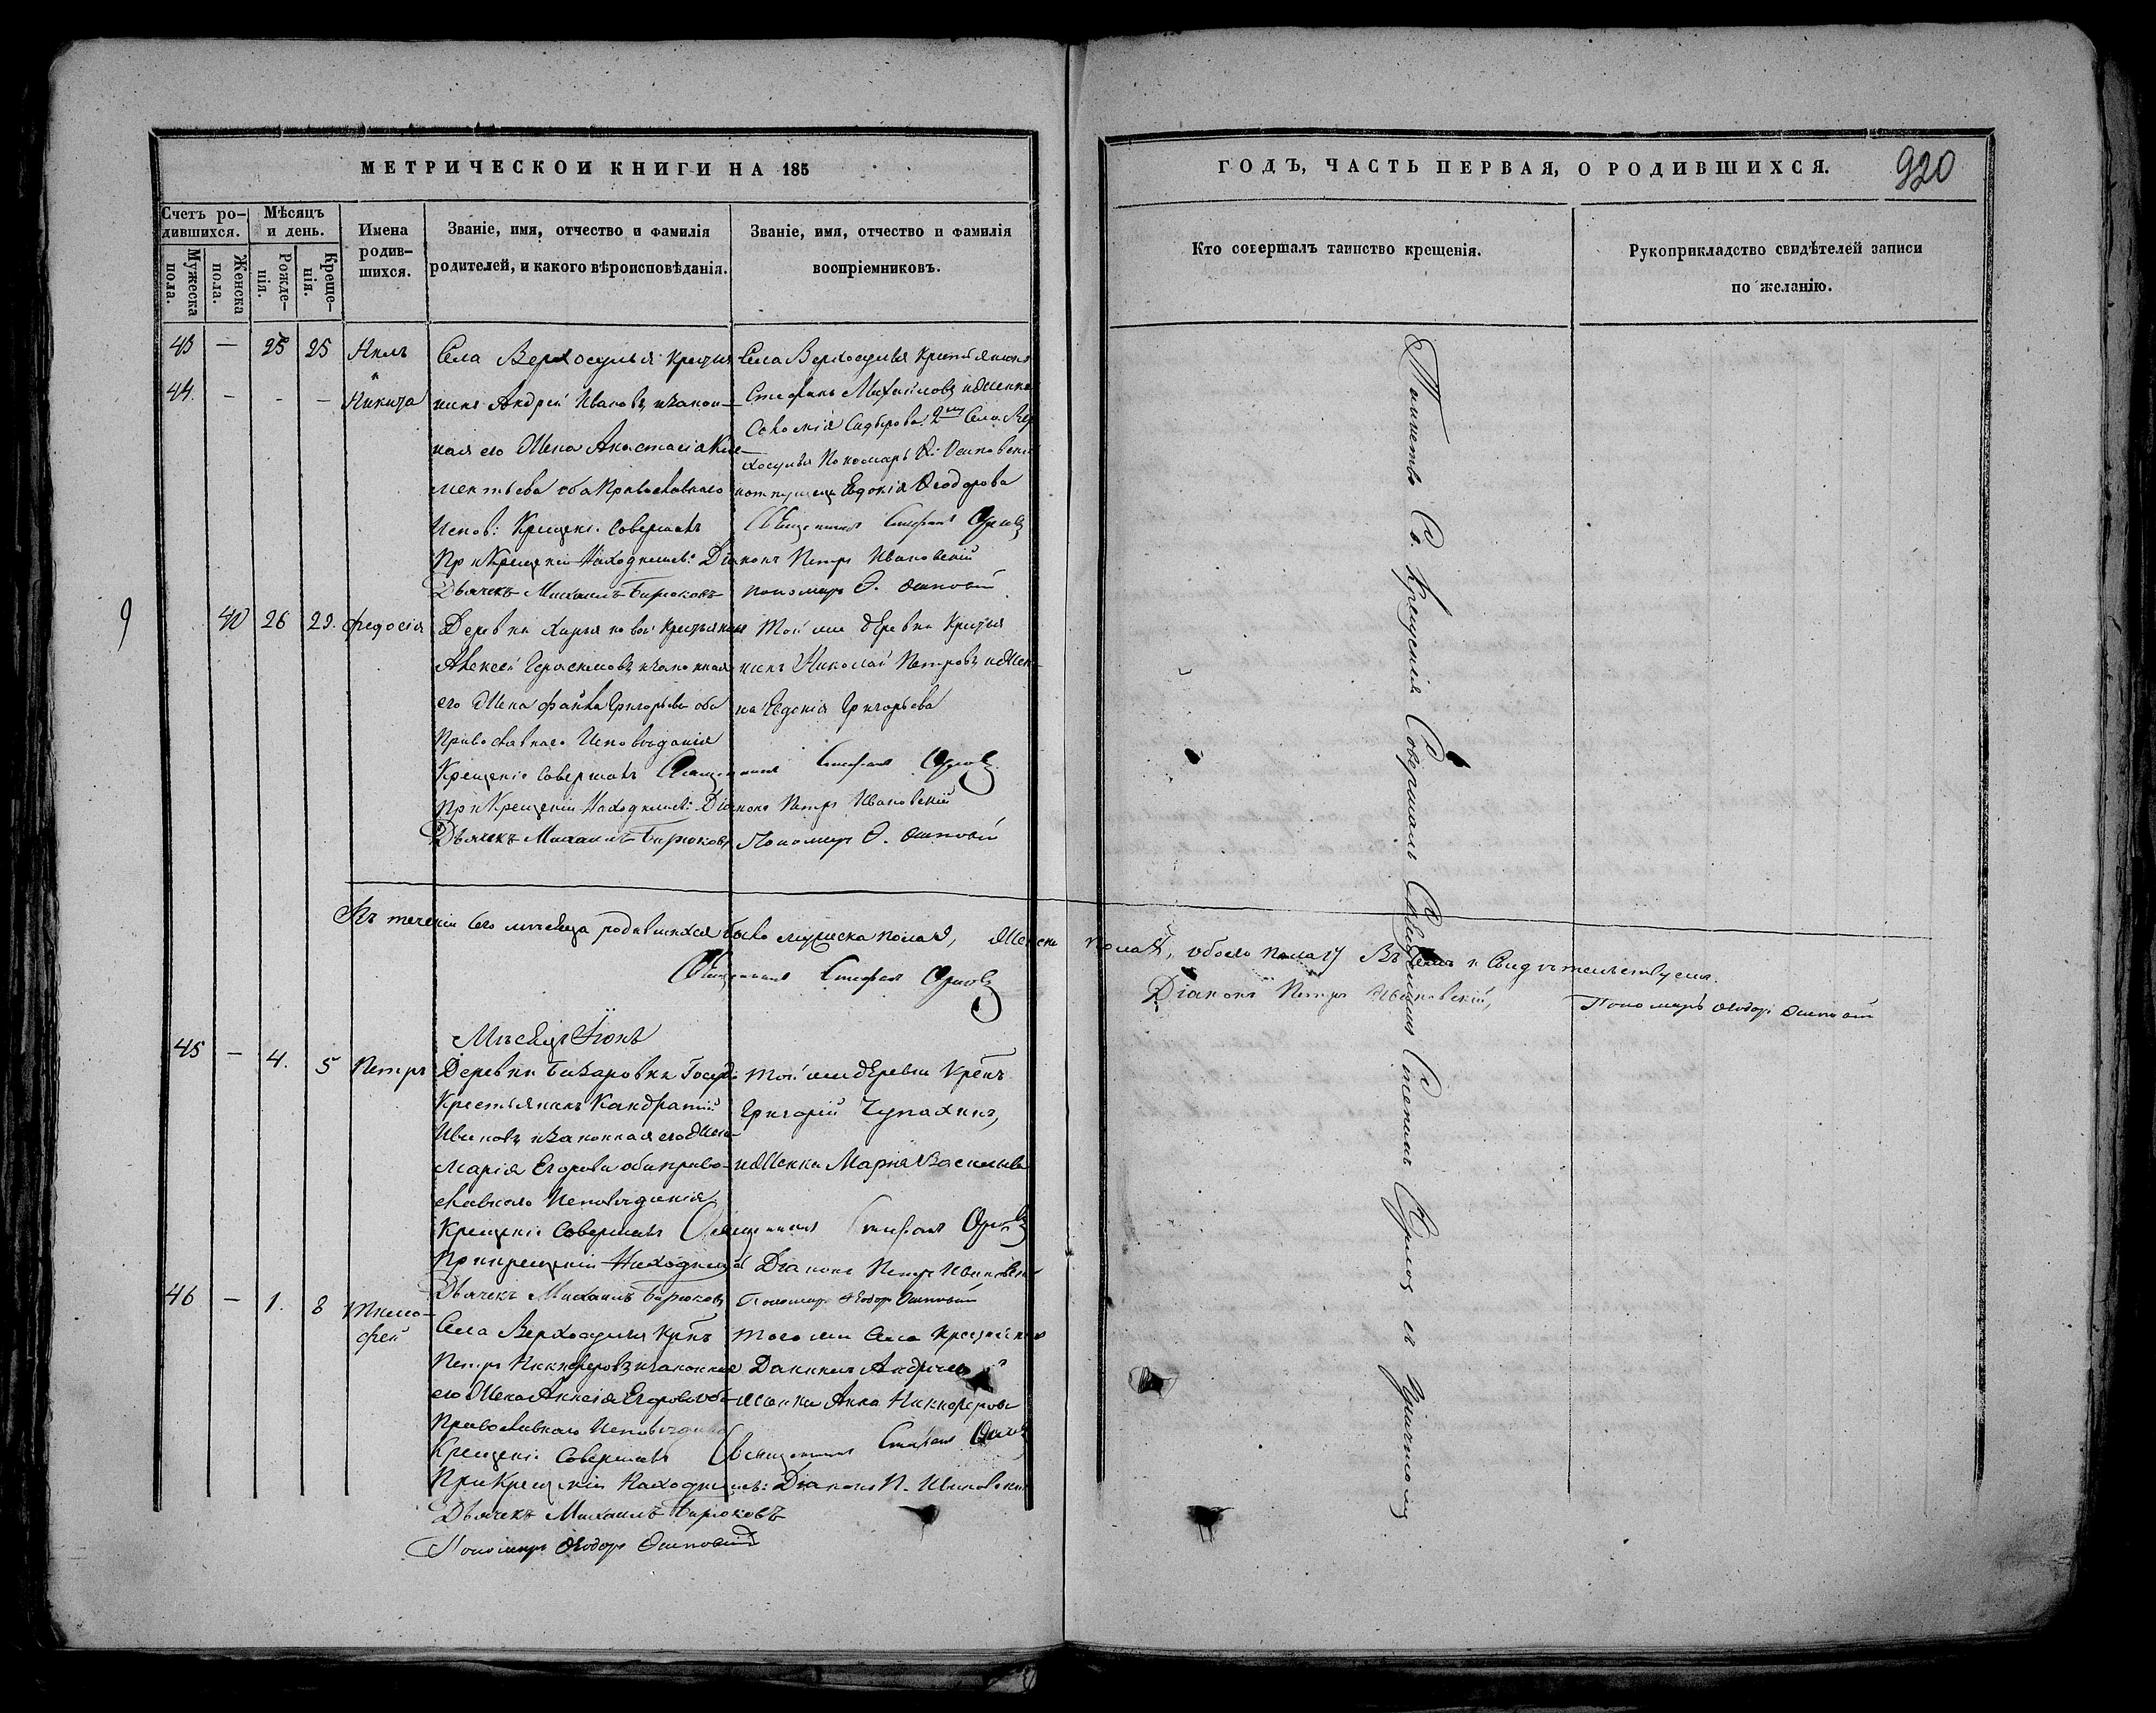 МЕТРИЧЕСКОЙ КНИГИ НА 185
Счетъ ро-
дившихся.
Мѣсяцъ
и день.
Имена
родив-
шихся.
Званіе, имя, отчество и фамилія
родителей, и какого вѣроисповѣданія.
Званіе, имя, отчество и фамилія
воспріемниковъ.
Мужеска
пола.
Женска
пола.
Рожде-
нія.
Креще-
нія.
43 — 25 25 Нилъ
и
44. - - - Никита
Села Верхосулья
Андрей Ивановъ и закон-
ная его жена Анастасія Кле-
ментьева оба Православнаго
Испов: Крещеніе Совершалъ
При Крещеніи Находились: Діаконъ Петръ Ивановскій
Дьячекъ Михаилъ Бирюковъ
Села Верхосулья
Стефанъ Михайловъ и женка
Сидорова. 2хъ Села Вер
хосулья Пономарь
Евдокія Ѳеодорова
Священникъ Стефанъ Орловъ
Пономарь Ѳ.
40 26 29. Федосія
Деревни
Алексей Герасимовъ и законная
его жена Григорьева оба
Православнаго Исповѣданія
Крещеніе Совершалъ Священникъ Стефанъ Орловъ
При Крещеніи Находились: Діаконъ Петръ Ивановскій
Дьячекъ Михаилъ Бирюковъ Пономарь Ѳ.
Той же деревни Крестья
нинъ Николай Петровъ и жен-
ка Евдокія Григорьева
9
Въ теченіи сего мѣсяца родившихся было мужеска пола 9, женска пола 8, обоего пола 17 Въ чемъ и Свидѣтельствуемъ.
Священникъ Стефанъ Орловъ
Діаконъ Петръ Ивановскій,
Пономарь Ѳеодоръ
Мѣсяцъ Іюнь
45 — 4. 5 Петръ
Деревни Госуд:
Крестьянинъ Кандратій
Ивановъ и законная его жена
Марія Егорова оба право-
славнаго Исповѣданія
Крещеніе Совершалъ Священникъ Стефанъ Орловъ
При крещеніи Находились Діаконъ Петръ Ивановскій
Дьячекъ Михаилъ Бирюковъ Пономарь Ѳеодоръ
Той же деревни Крѣнъ
Григорій Чупахинъ,
и женка Марія Васильева
46 — 1. 8 Тимо-
фей
Села Верхосулья Крнъ
Петръ Никифоровъ и законная
его жена Егорова оба
Православнаго Исповѣданія
Крещеніе Совершалъ Священникъ Стефанъ Орловъ
При Крещеніи Находились: Діаконъ П. Ивановскій
Дьячекъ Михаилъ Бирюковъ
Пономарь Ѳеодоръ
Того же Села
Даниилъ Андреевъ
женка Анна Никифорова
ГОДЪ, ЧАСТЬ ПЕРВАЯ, О РОДИВШИХСЯ.
920
Кто совершалъ таинство крещенія.
Рукоприкладство свидѣтелей записи
по желанію.
Таинство Св. Крещенія Совершалъ Священникъ Стефанъ Орловъ съ Причтомъ